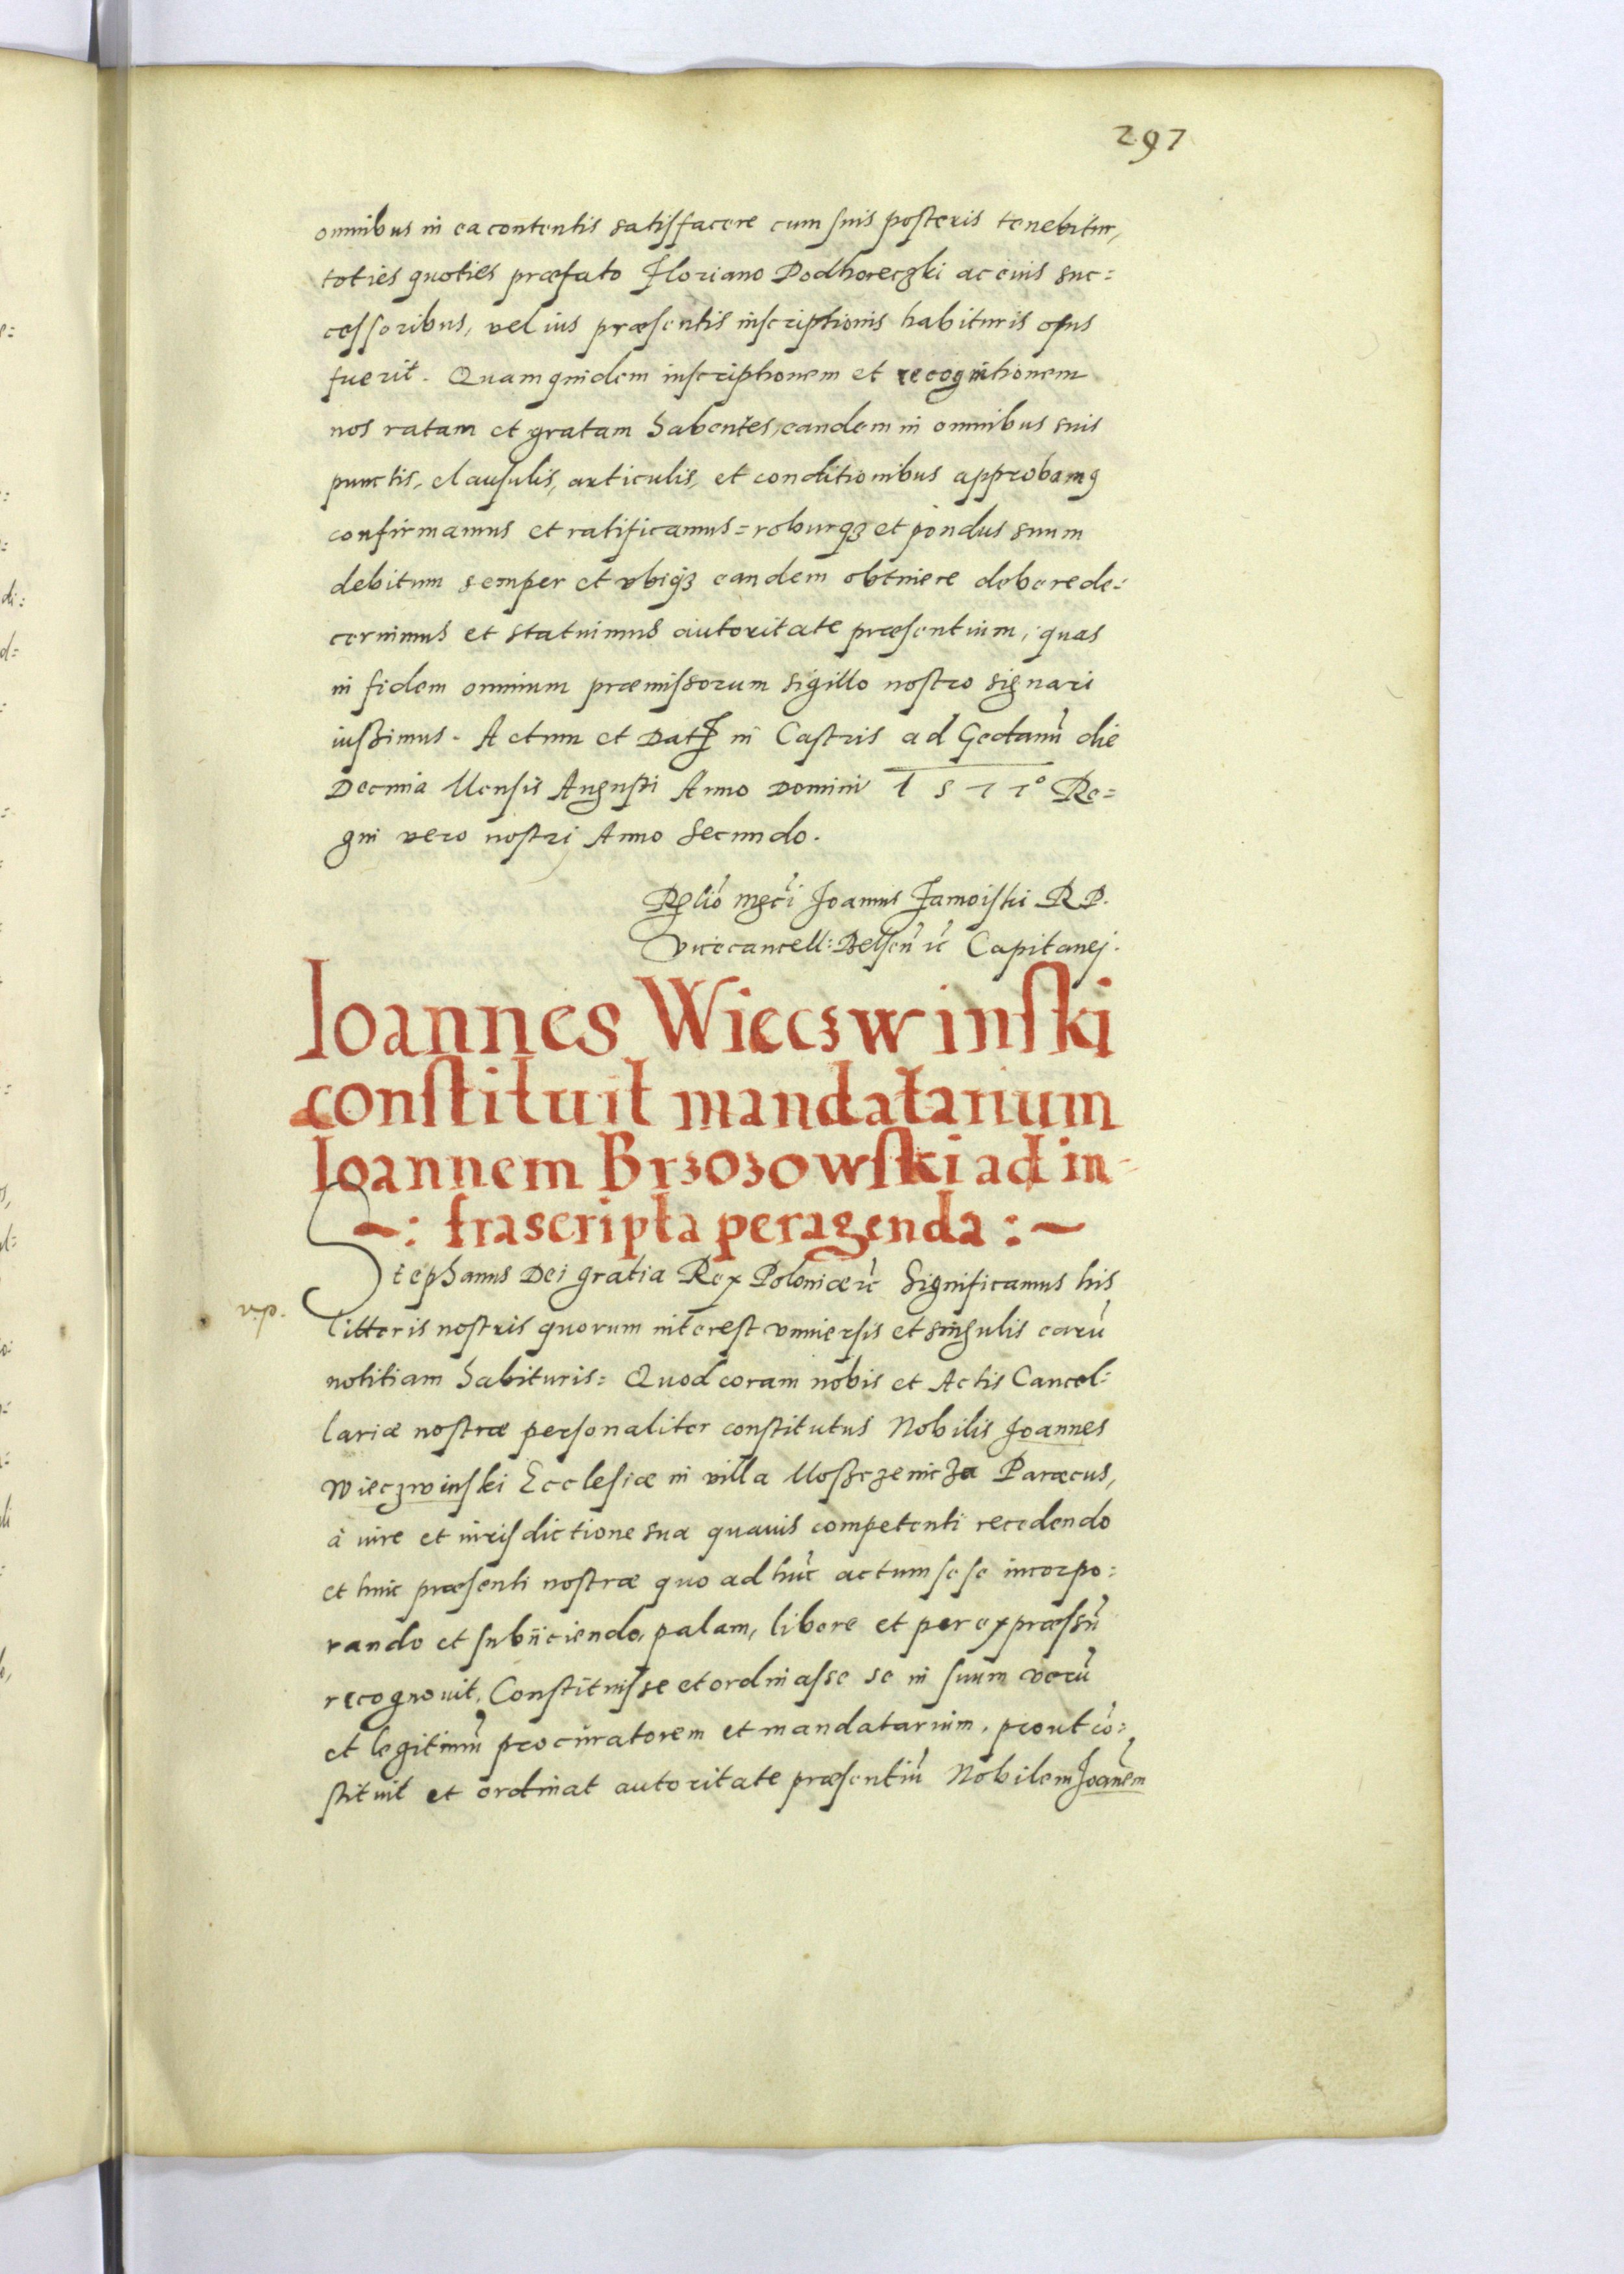 297
omnibus in ea contentis satisfacere cum suis posteris tenebitur,
toties quoties præfato Floriano Podhoreczki ac eius suc=
cessoribus, vel ius præsentis inscriptionis habituris opus
fuerit. Quam quidem inscriptionem et recognitionem
nos ratam et gratam habentes, eandem in omnibus suis
punctis, clausulis, articulis, et conditionibus approbamꝯ
confirmamus et ratificamus = roburqꝫ et pondus suum
debitum semper et vbiqꝫ eandem obtinere debere de=
cernimus et statuimus autoritate præsentium, quas
in fidem omnium præmissorum sigillo nostro signari
iussimus. Actum et Dat in Castris ad Gedanū die
Decima Mensis Augusti Anno Domini 1577° Re=
gni vero nostri Anno Secundo.
Relio mgci Joannis Zamoiski R P.
vicecancell: Belsen ꝛc Capitanej.
Ioannes Wieczwinski
constituit mandatarium
Ioannem Brzozowski ad in-
~: frascripta peragenda :~
Stephanus Dei gratia Rex Poloniæ ꝛc Significamus his
v.p.
litteris nostris quorum interest vniuersis et singulis earū
notitiam habituris = Quod coram nobis et Actis Cancel=
lariæ nostræ personaliter constitutus Nobilis Joannes
Wieczwinski Ecclesiæ in villa Moszczenicza Paræcus,
à iure et iurisdictione sua quauis competenti recedendo
et huic præsenti nostræ quo ad huc actum sese incorpo=
rando et subijciendo, palam, libere et per expræssū
recognouit, Constituisse et ordinasse se in suum verū
et legitimū procuratorem et mandatarium, prout cō=
stituit et ordinat autoritate præsentiū Nobilem Joanēm